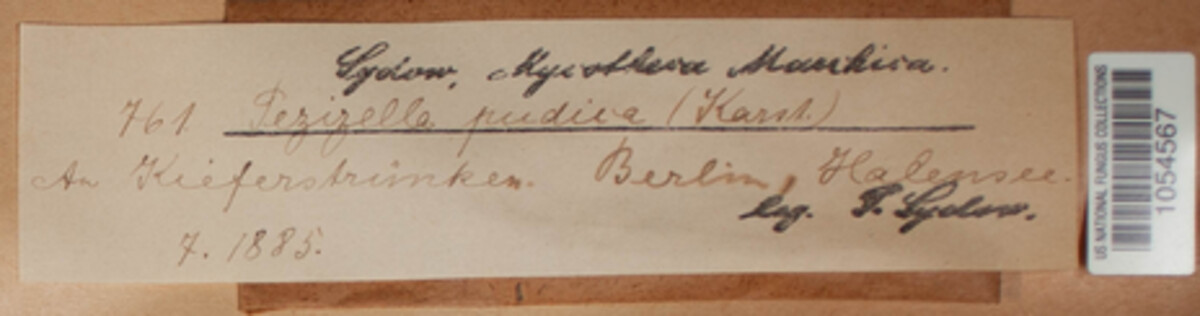 Sydow, Mycotheca Marchica.
761. Pezizella pudica (Karst.)
An Kieferstrünken. Berlin, Halensee.
leg. P. Sydow.
7. 1885.
US NATIONAL FUNGUS COLLECTIONS
1054567